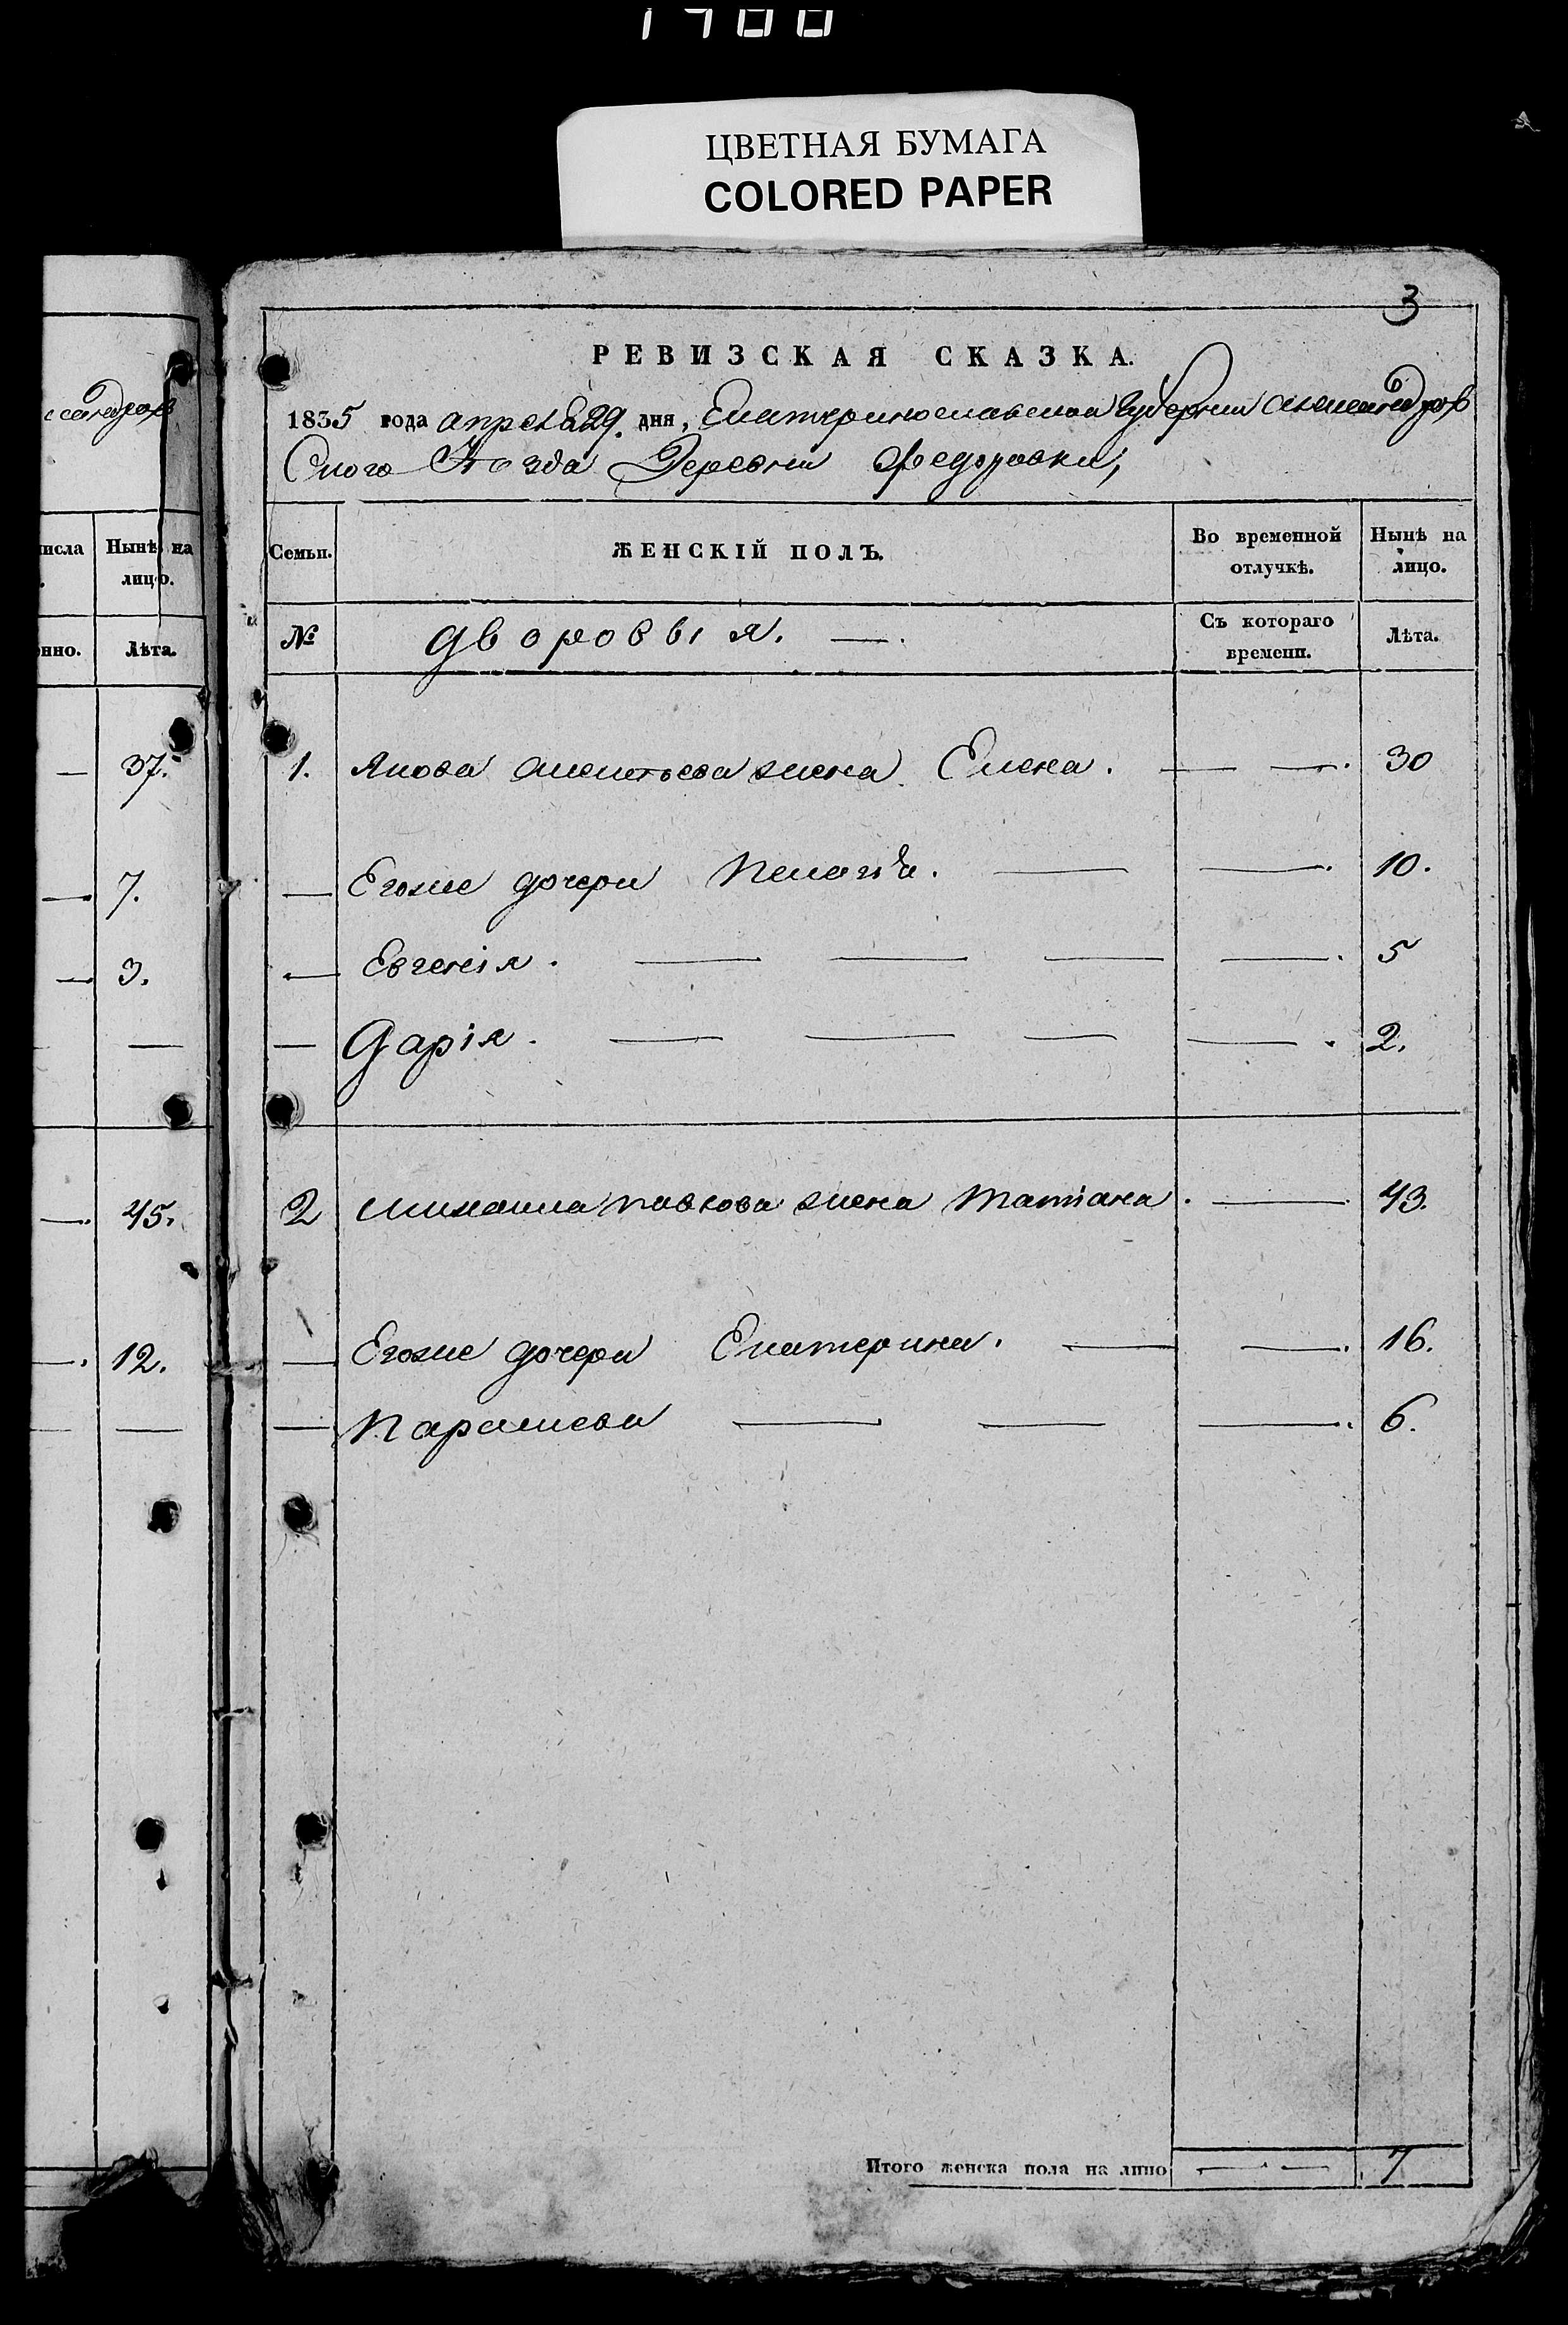 1700
ЦВЕТНАЯ БУМАГА
COLORED PAPER
3
РЕВИЗСКАЯ СКАЗКА.
1835 года апреля 29. дня, Екатеринославской Губернии Александров
Скаго Уезда Деревни Федоровки,
Семьи. ЖЕНСКІЙ ПОЛЪ. Во временной отлучкѣ. Нынѣ на лицо.
№ дворовыя. Съ котораго времени. Лѣта.
1. Якова жена Елена. 30
Егоже дочери Пелагѣя. 10.
Евгенія. 5
Дарія. 2.
2 Михаила Павлова жена Татіана. 43.
Егоже дочери Екатерина. 16.
Параскева 6.
Итого женска пола на лицо 7
Нынѣ на
лицо.
Лѣта.
37.
7.
3.
45.
12.